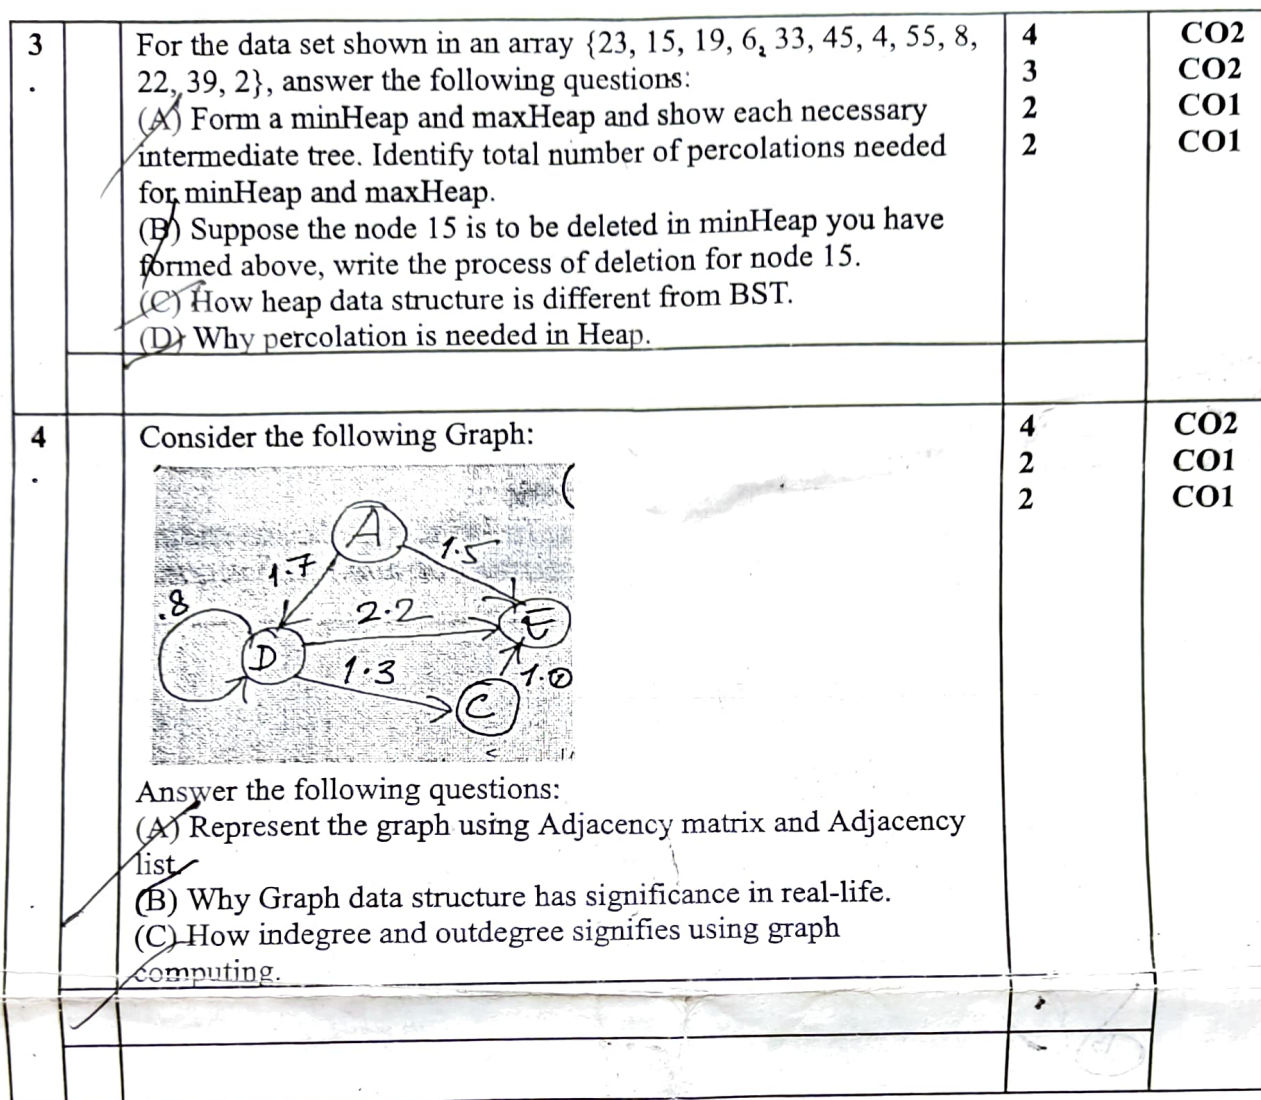 3
.
For the data set shown in an array {23, 15, 19, 6, 33, 45, 4, 55, 8,
22, 39, 2}, answer the following questions:
(A) Form a minHeap and maxHeap and show each necessary
intermediate tree. Identify total number of percolations needed
for minHeap and maxHeap.
(B) Suppose the node 15 is to be deleted in minHeap you have
formed above, write the process of deletion for node 15.
(C) How heap data structure is different from BST.
(D) Why percolation is needed in Heap.
4
3
2
2
CO2
CO2
CO1
CO1
4
.
Consider the following Graph:
A
1.7
1.5
.8
2.2
E
D
1.3
1.0
C
Answer the following questions:
(A) Represent the graph using Adjacency matrix and Adjacency
list
(B) Why Graph data structure has significance in real-life.
(C) How indegree and outdegree signifies using graph
computing.
4
2
2
CO2
CO1
CO1